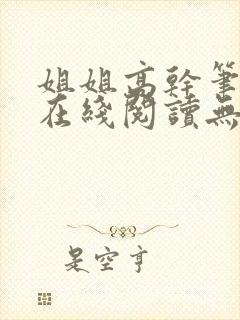 姐姐高幹筆
在綫閱讀無
是空亨